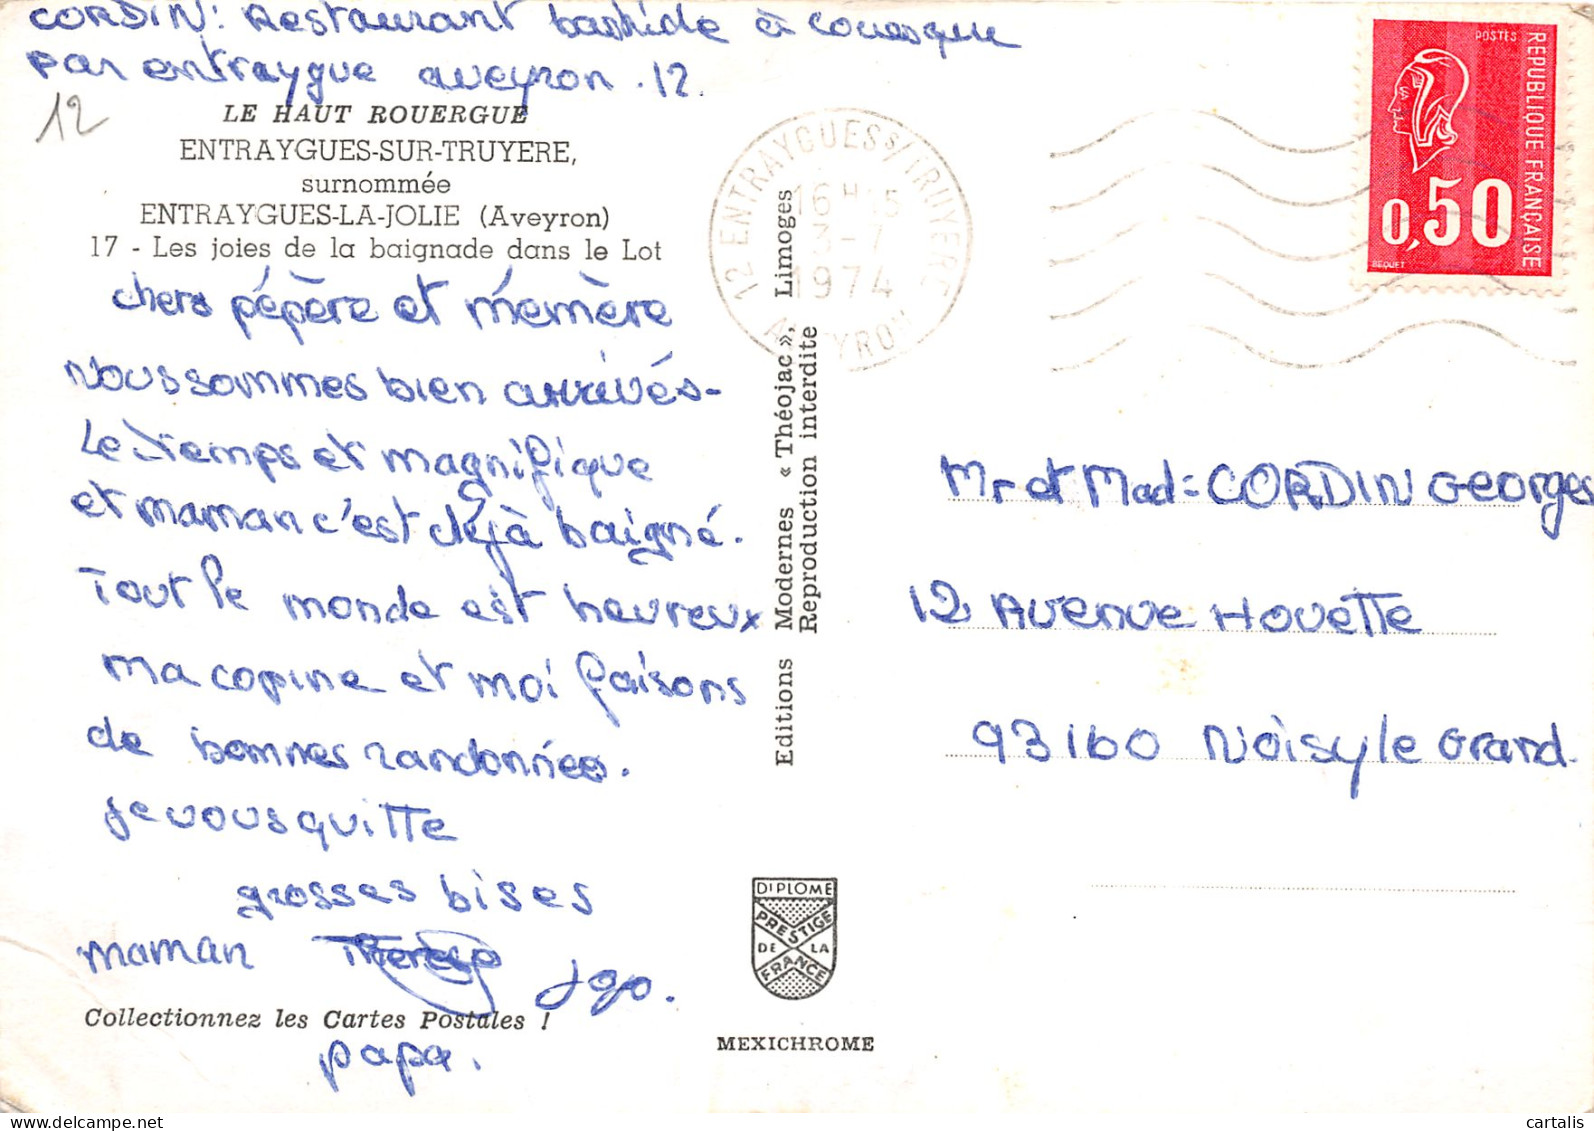 CORDIN: Restaurant bastide à couesque
par entraygue aveyron .12.
12
LE HAUT ROUERGUE
ENTRAYGUES-SUR-TRUYERE,
surnommée
ENTRAYGUES-LA-JOLIE (Aveyron)
17 - Les joies de la baignade dans le Lot
chers pépère et mémère
Nous sommes bien arrivés-
Le temps et magnifique
et maman c'est déjà baigné.
Tout le monde est heureux
ma copine et moi faisons
de bonnes randonnées.
je vous quitte
grosses bises
maman Therese
papa.
Collectionnez les Cartes Postales !
Editions Modernes « Théojac », Limoges
Reproduction interdite
DIPLOME
PRESTIGE
DE LA
FRANCE
MEXICHROME
12 ENTRAYGUES S/TRUYERE
16H15
3-7
1974
AVEYRON
POSTES
REPUBLIQUE FRANÇAISE
0,50
BEQUET
Mr et Mad= CORDIN Georges
12 Avenue Houette
93160 Noisy le Grand.
cartalis